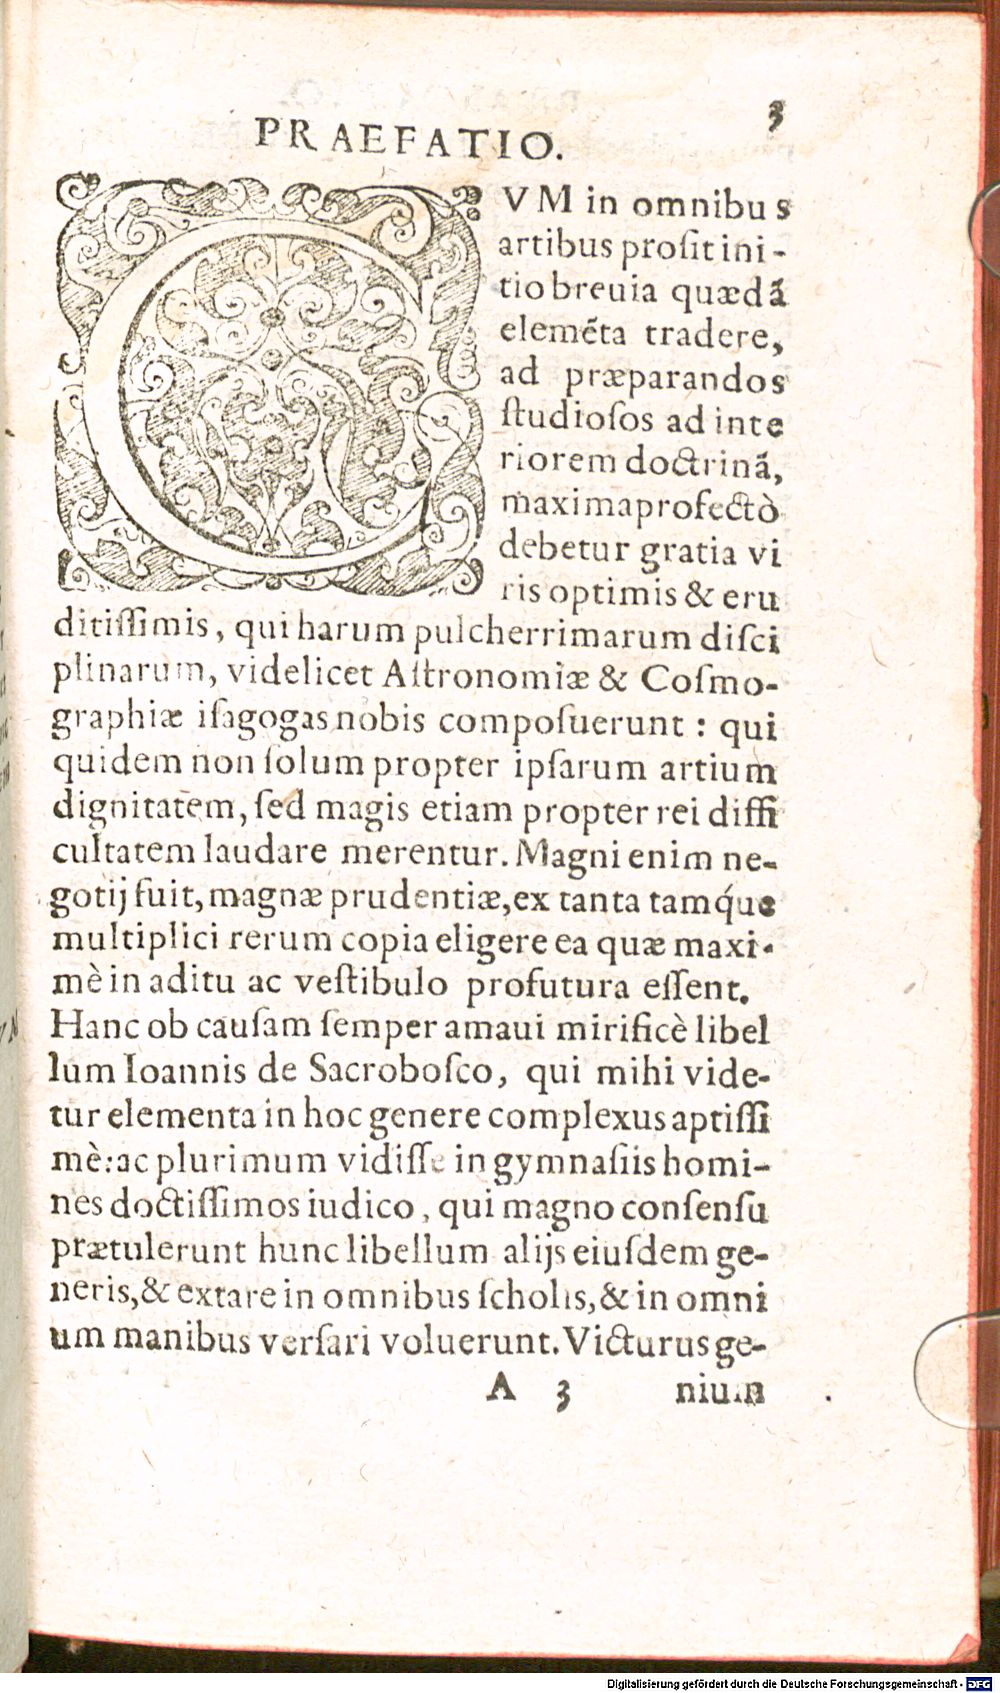 3
PRAEFATIO.
CVM in omnibus
artibus proſit ini-
tio breuia quædã
elemẽta tradere,
ad præparandos
ſtudioſos ad inte
riorem doctrinã,
maxima profectò
debetur gratia vi
ris optimis & eru
ditiſſimis, qui harum pulcherrimarum diſci
plinarum, videlicet Aſtronomiæ & Coſmo-
graphiæ iſagogas nobis compoſuerunt: qui
quidem non ſolum propter ipſarum artium
dignitatem, ſed magis etiam propter rei diffi
cultatem laudare merentur. Magni enim ne-
gotij fuit, magnæ prudentiæ, ex tanta tamq́ue
multiplici rerum copia eligere ea quæ maxi-
mè in aditu ac veſtibulo profutura eſſent.
Hanc ob cauſam ſemper amaui mirificè libel
lum Ioannis de Sacroboſco, qui mihi vide-
tur elementa in hoc genere complexus aptiſſi
mè: ac plurimum vidiſſe in gymnaſiis homi-
nes doctiſſimos iudico, qui magno conſenſu
prætulerunt hunc libellum alijs eiuſdem ge-
neris, & extare in omnibus ſcholis, & in omni
um manibus verſari voluerunt. Victurus ge-
A 3 nium
Digitalisierung gefördert durch die Deutsche Forschungsgemeinschaft - DFG